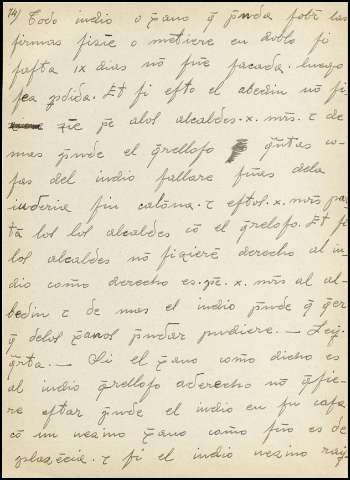 14) Todo iudio o xp̃ano q̃ p̃nda sobr̃ las
firmas fizie o metiere en doblo si
fasta ix dias nõ fue sacada. luego
sea p̃dida. Et si esto el abedin nõ fi
zie pe alos alcaldes. x. mr̃s. τ de
mas p̃nde el q̃rellofo q̃ñtas co-
sas del iudio fallare fũas dela
iuderia sin calõna. τ estos. x. mr̃s pa
ta los los alcaldes cõ el q̃relofo. Et si
los alcaldes nõ fizierẽ derecho al iu
dio comõ derecho es. pe. x. mr̃s al al-
bedin τ de mas el iudio p̃nde q̃ q̃er
q̃ delos xp̃anos p̃ndar pudiere. — Ley
q̃rta. — Si el xp̃ano comõ dicho es
al iudio q̃rellofo aderecho nõ q̃sie-
re estar p̃nde el iudio en su casa
cõ un uezino xp̃ano comõ sño es de
 τ si el iudio uezino